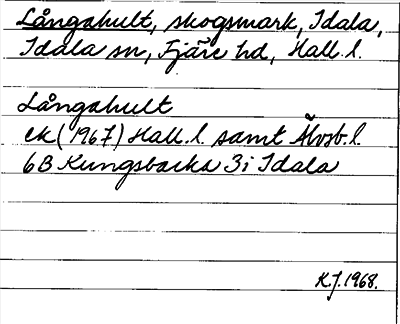 Långahult, skogsmark, Idala,
Idala sn, Fjäre hd, Hall.l.
Långahult
ek (1967) Hall.l. samt Älvsb.l.
6B Kungsbacka 3i Idala
K.J. 1968.